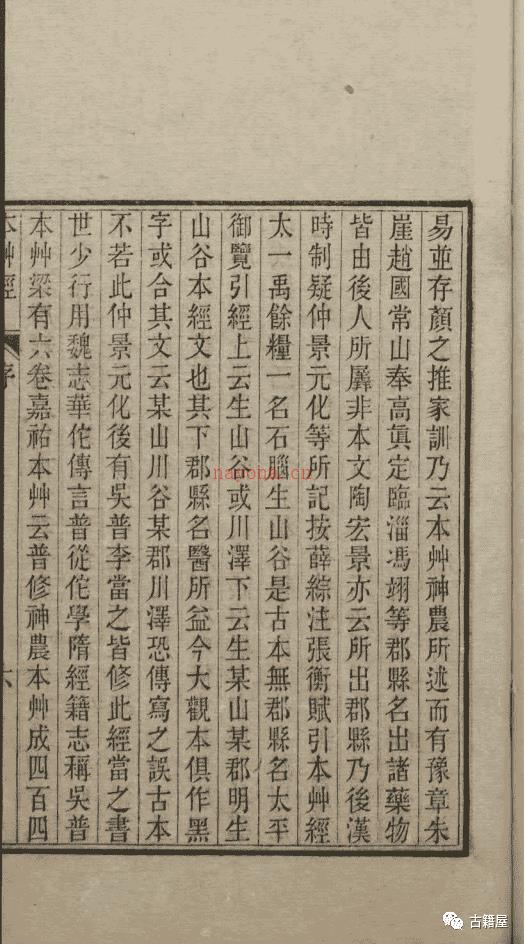 易並存顏之推家訓乃云本艸神農所述而有豫章朱
崖趙國常山奉高眞定臨淄馮翊等郡縣名出諸藥物
皆由後人所羼非本文陶宏景亦云所出郡縣乃後漢
時制疑仲景元化等所記按薛綜注張衡賦引本艸經
太一禹餘糧一名石腦生山谷是古本無郡縣名太平
御覽引經上云生山谷或川澤下云生某山某郡明生
山谷本經文也其下郡縣名醫所益今大觀本俱作黑
字或合其文云某山川谷某郡川澤恐傳寫之誤古本
不若此仲景元化後有吳普李當之皆修此經當之書
世少行用魏志華佗傳言普從佗學隋經籍志稱吳普
本艸梁有六卷嘉祐本艸云普修神農本艸成四百四
本艸經 序 六
nanona.cn
古籍屋